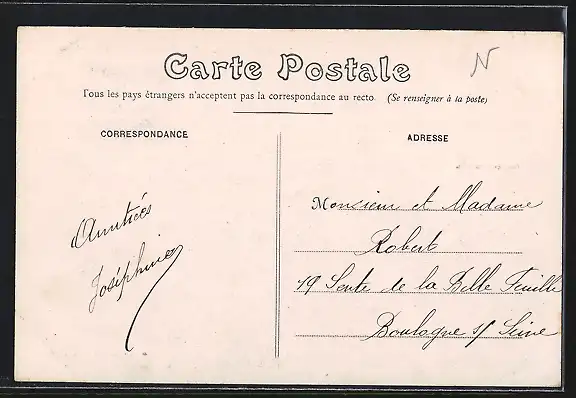 Carte Postale
N
Tous les pays étrangers n'acceptent pas la correspondance au recto. (Se renseigner à la poste)
CORRESPONDANCE
Amitiés
Joséphine
ADRESSE
Monsieur et Madame
Robert
19 Sente de la Belle Feuille
Boulogne s/ Seine